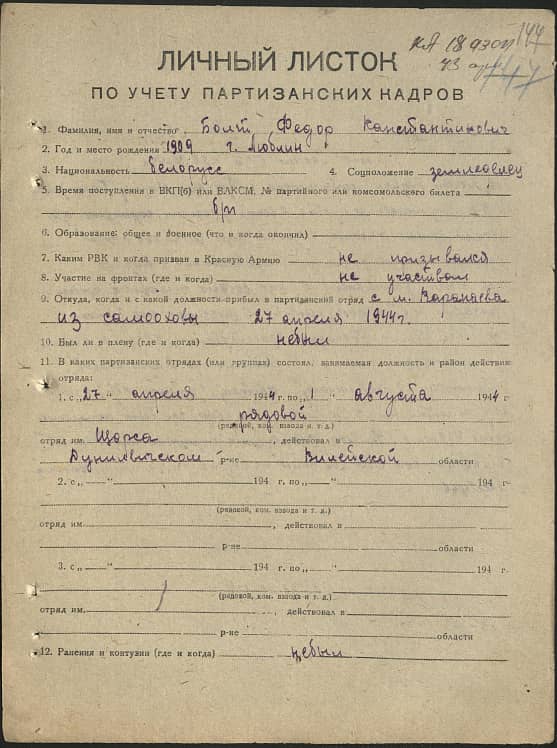 144
ЛИЧНЫЙ ЛИСТОК
ПО УЧЕТУ ПАРТИЗАНСКИХ КАДРОВ
1. Фамилия, имя и отчество Болт Федор Канстантинович
2. Год и место рождения 1909 г. Люблин
3. Национальность белорусс 4. Соцположение
5. Время поступления в ВКП(б) или ВЛКСМ, № партийного или комсомольского билета
б/п
6. Образование: общее и военное (что и когда окончил)
7. Каким РВК и когда призван в Красную Армию не призывался
8. Участие на фронтах (где и когда) не учаством
9. Откуда, когда и с какой должности прибыл в партизанский отряд с м.
из самооховы 27 апреля 1944 г.
10. Был ли в плену (где и когда) небыл
11. В каких партизанских отрядах (или группах) состоял, занимаемая должность и район действию
отряда:
1. с „27 “ апреля 1944 г. по „1 “ августа 1944
рядовой
(рядовой, ком. взвода и т. д.)
отряд им. Щожа , действовал в
Дуниловичском р-не Вилейской области
2. с „ “ 194 г. по „ “ 194 г.
(рядовой, ком. взвода и т. д.)
отряд им. , действовал в
р-не области
3. с „ “ 194 г. по „ “ 194 г.
(рядовой, ком. взвода и т. д.)
отряд им. , действовал в
р-не области
12. Ранения и контузии (где и когда) небыл